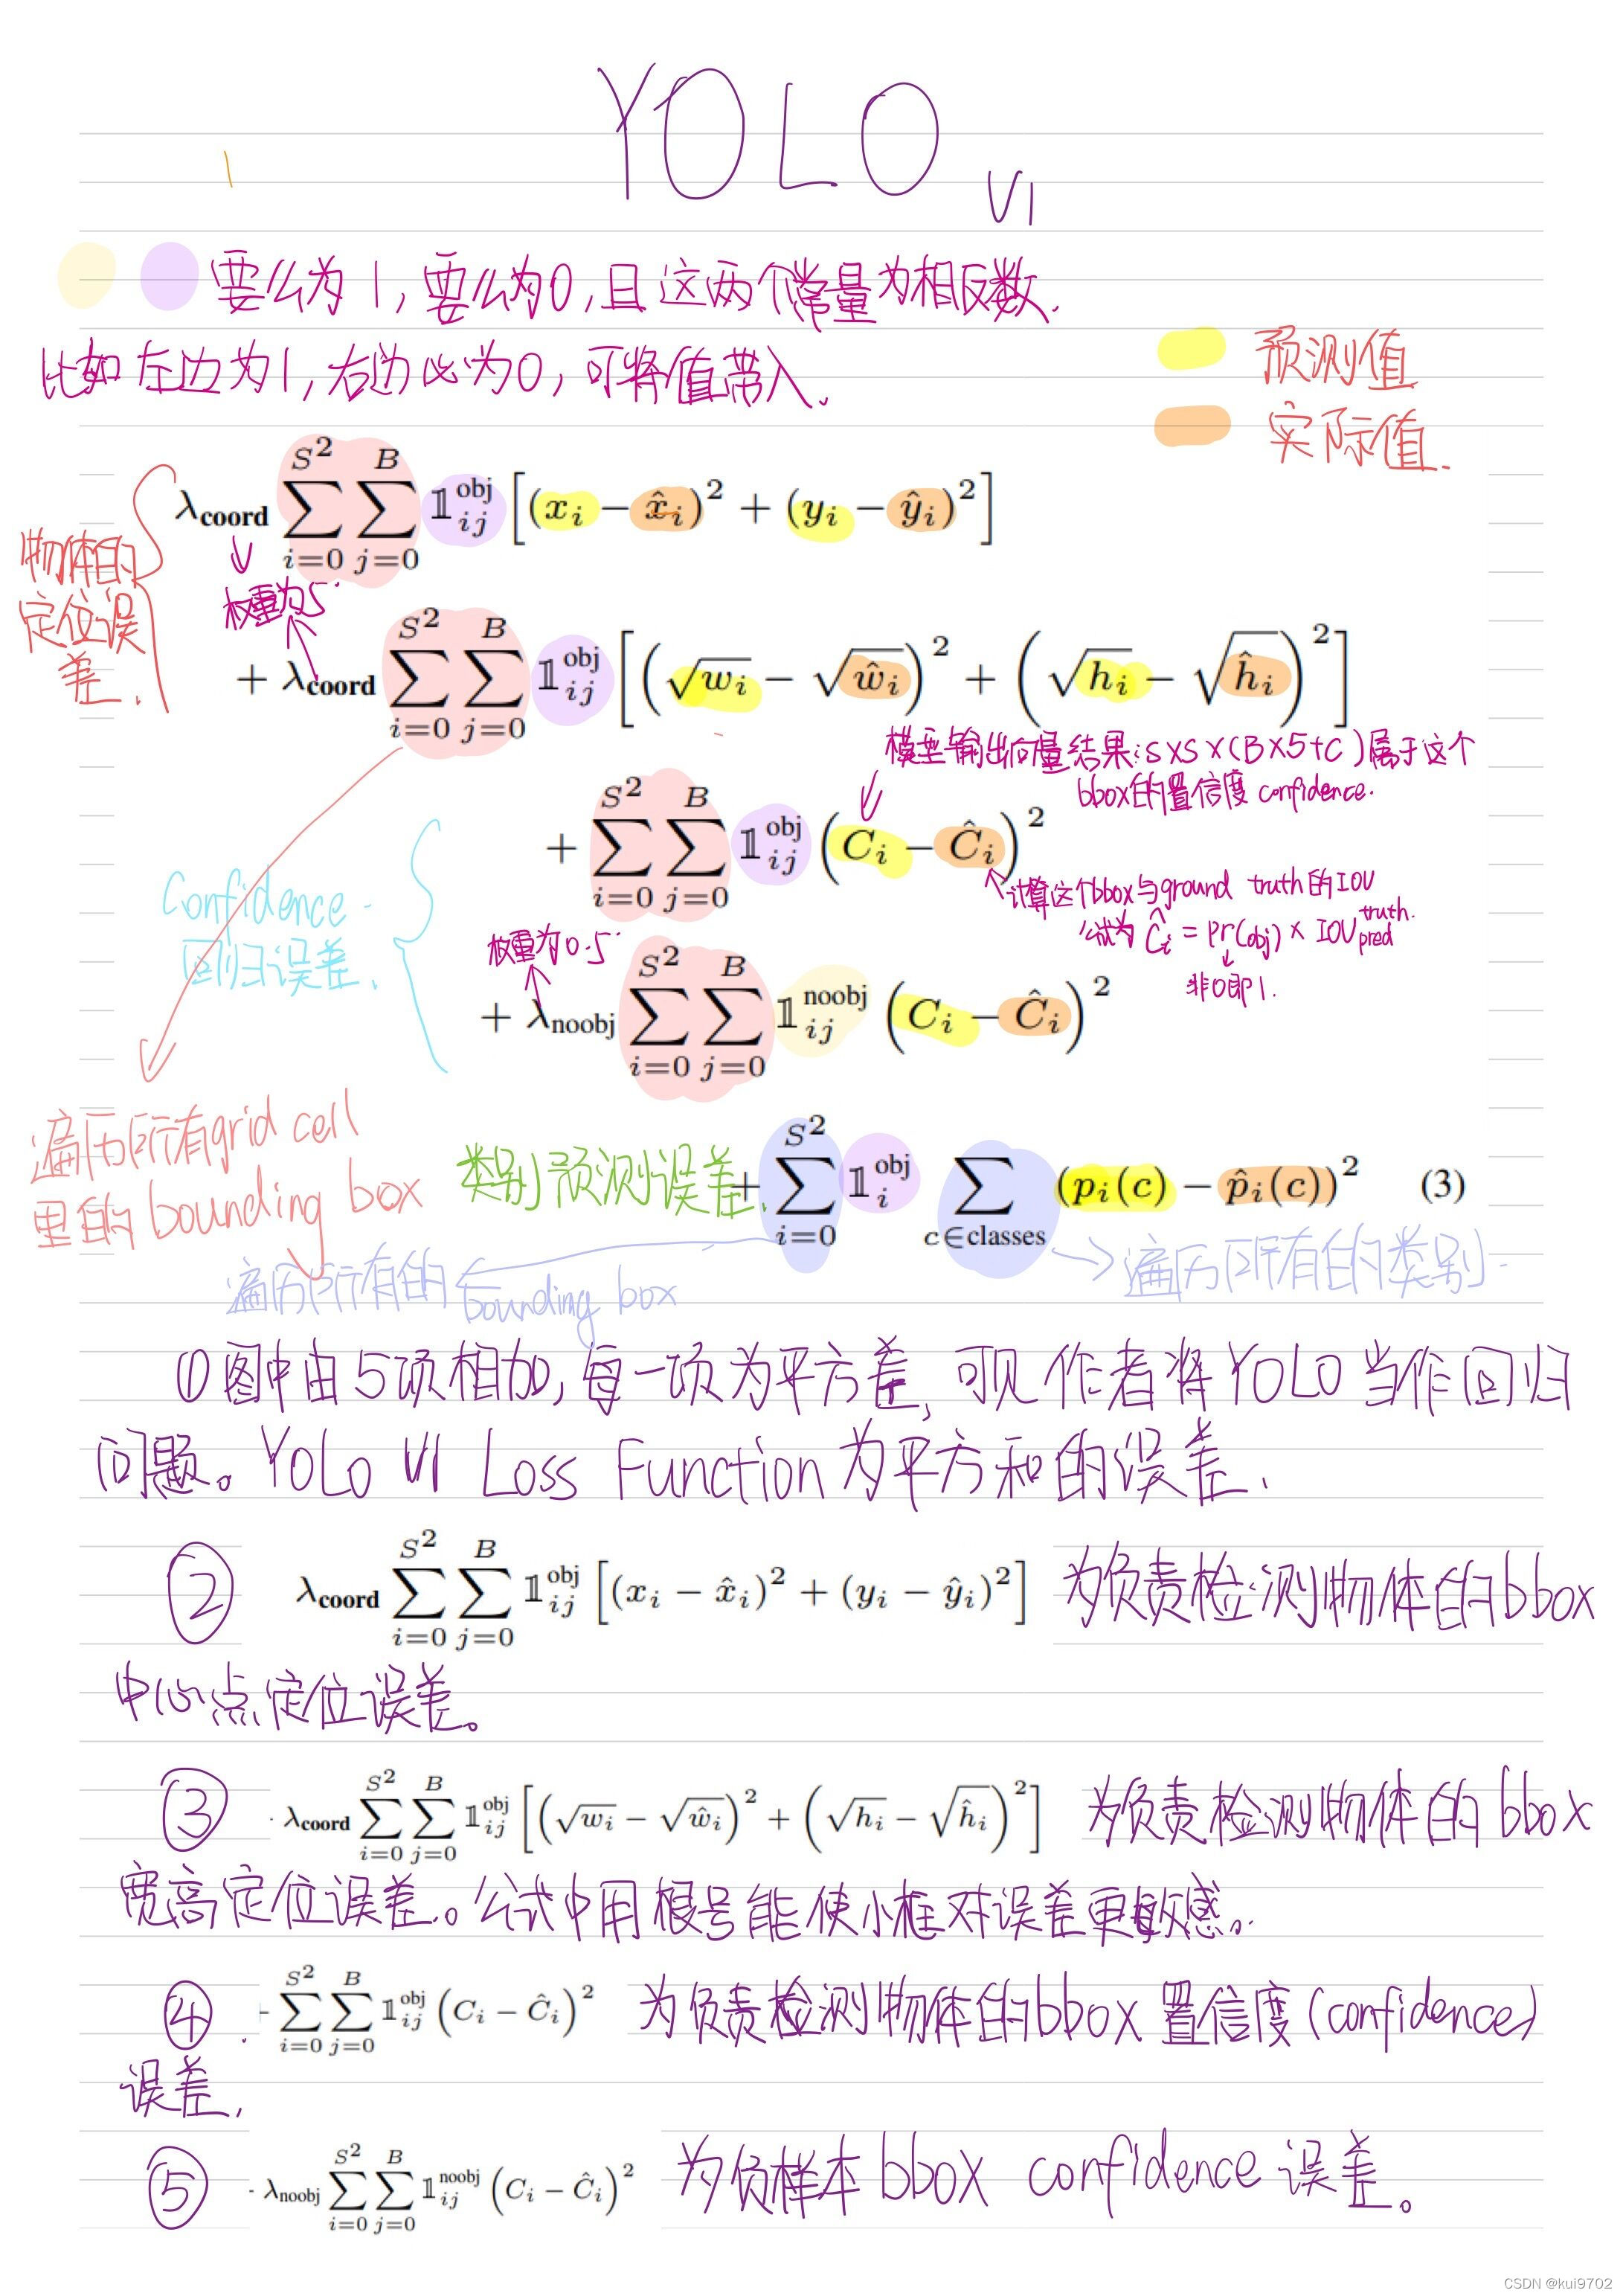 YOLO v1
要么为1,要么为0,且这两个常量为相反数.
比如左边为1,右边必为0,可将值带入.
预测值
实际值.
物体的
定位误
差.
λcoord ∑_{i=0}^{S²} ∑_{j=0}^{B} 𝟙_{ij}^{obj} [(x_i − x̂_i)² + (y_i − ŷ_i)²]
权重为5
+ λcoord ∑_{i=0}^{S²} ∑_{j=0}^{B} 𝟙_{ij}^{obj} [(√w_i − √ŵ_i)² + (√h_i − √ĥ_i)²]
模型输出向量结果:S×S×(B×5+C)属于这个
bbox的置信度 confidence.
+ ∑_{i=0}^{S²} ∑_{j=0}^{B} 𝟙_{ij}^{obj} (C_i − Ĉ_i)²
计算这个bbox与ground truth的IOU
公式为 Ĉ_i = pr(obj) × IOU_{pred}^{truth}.
非0即1.
Confidence
回归误差.
权重为0.5
+ λnoobj ∑_{i=0}^{S²} ∑_{j=0}^{B} 𝟙_{ij}^{noobj} (C_i − Ĉ_i)²
遍历所有grid cell
里的bounding box
类别预测误差.
+ ∑_{i=0}^{S²} 𝟙_{i}^{obj} ∑_{c∈classes} (p_i(c) − p̂_i(c))² (3)
遍历所有的bounding box
遍历所有的类别.
①图中由5项相加,每一项为平方差,可见作者将YOLO当作回归
问题。YOLO V1 Loss Function为平方和的误差.
② λcoord ∑_{i=0}^{S²} ∑_{j=0}^{B} 𝟙_{ij}^{obj} [(x_i − x̂_i)² + (y_i − ŷ_i)²] 为负责检测物体的bbox
中心点定位误差。
③ λcoord ∑_{i=0}^{S²} ∑_{j=0}^{B} 𝟙_{ij}^{obj} [(√w_i − √ŵ_i)² + (√h_i − √ĥ_i)²] 为负责检测物体的bbox
宽高定位误差。公式中用根号能使小框对误差更敏感。
④ ∑_{i=0}^{S²} ∑_{j=0}^{B} 𝟙_{ij}^{obj} (C_i − Ĉ_i)² 为负责检测物体的bbox置信度(confidence)
误差.
⑤ λnoobj ∑_{i=0}^{S²} ∑_{j=0}^{B} 𝟙_{ij}^{noobj} (C_i − Ĉ_i)² 为负样本bbox confidence误差。
CSDN @kui9702